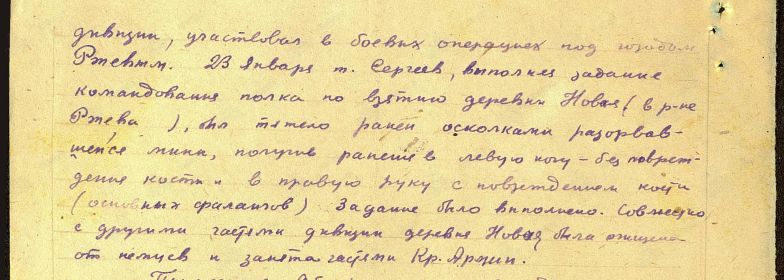 дивизии, участвовал в боевых операциях под городом
Ржевым. 23 Января т. Сергеев, выполняя задание
командования полка по взятию деревни Новая (в р-не
Ржева ), был тяжело ранен осколками разорвав-
шейся мины, получив ранение в левую ногу – без повреж-
дения кости и в правую руку с повреждением кости
(основных фалангов) Задание было выполнено. Совместно
с другими частями дивизии деревня Новая была очищена
от немцев и занята частями Кр. Армии.